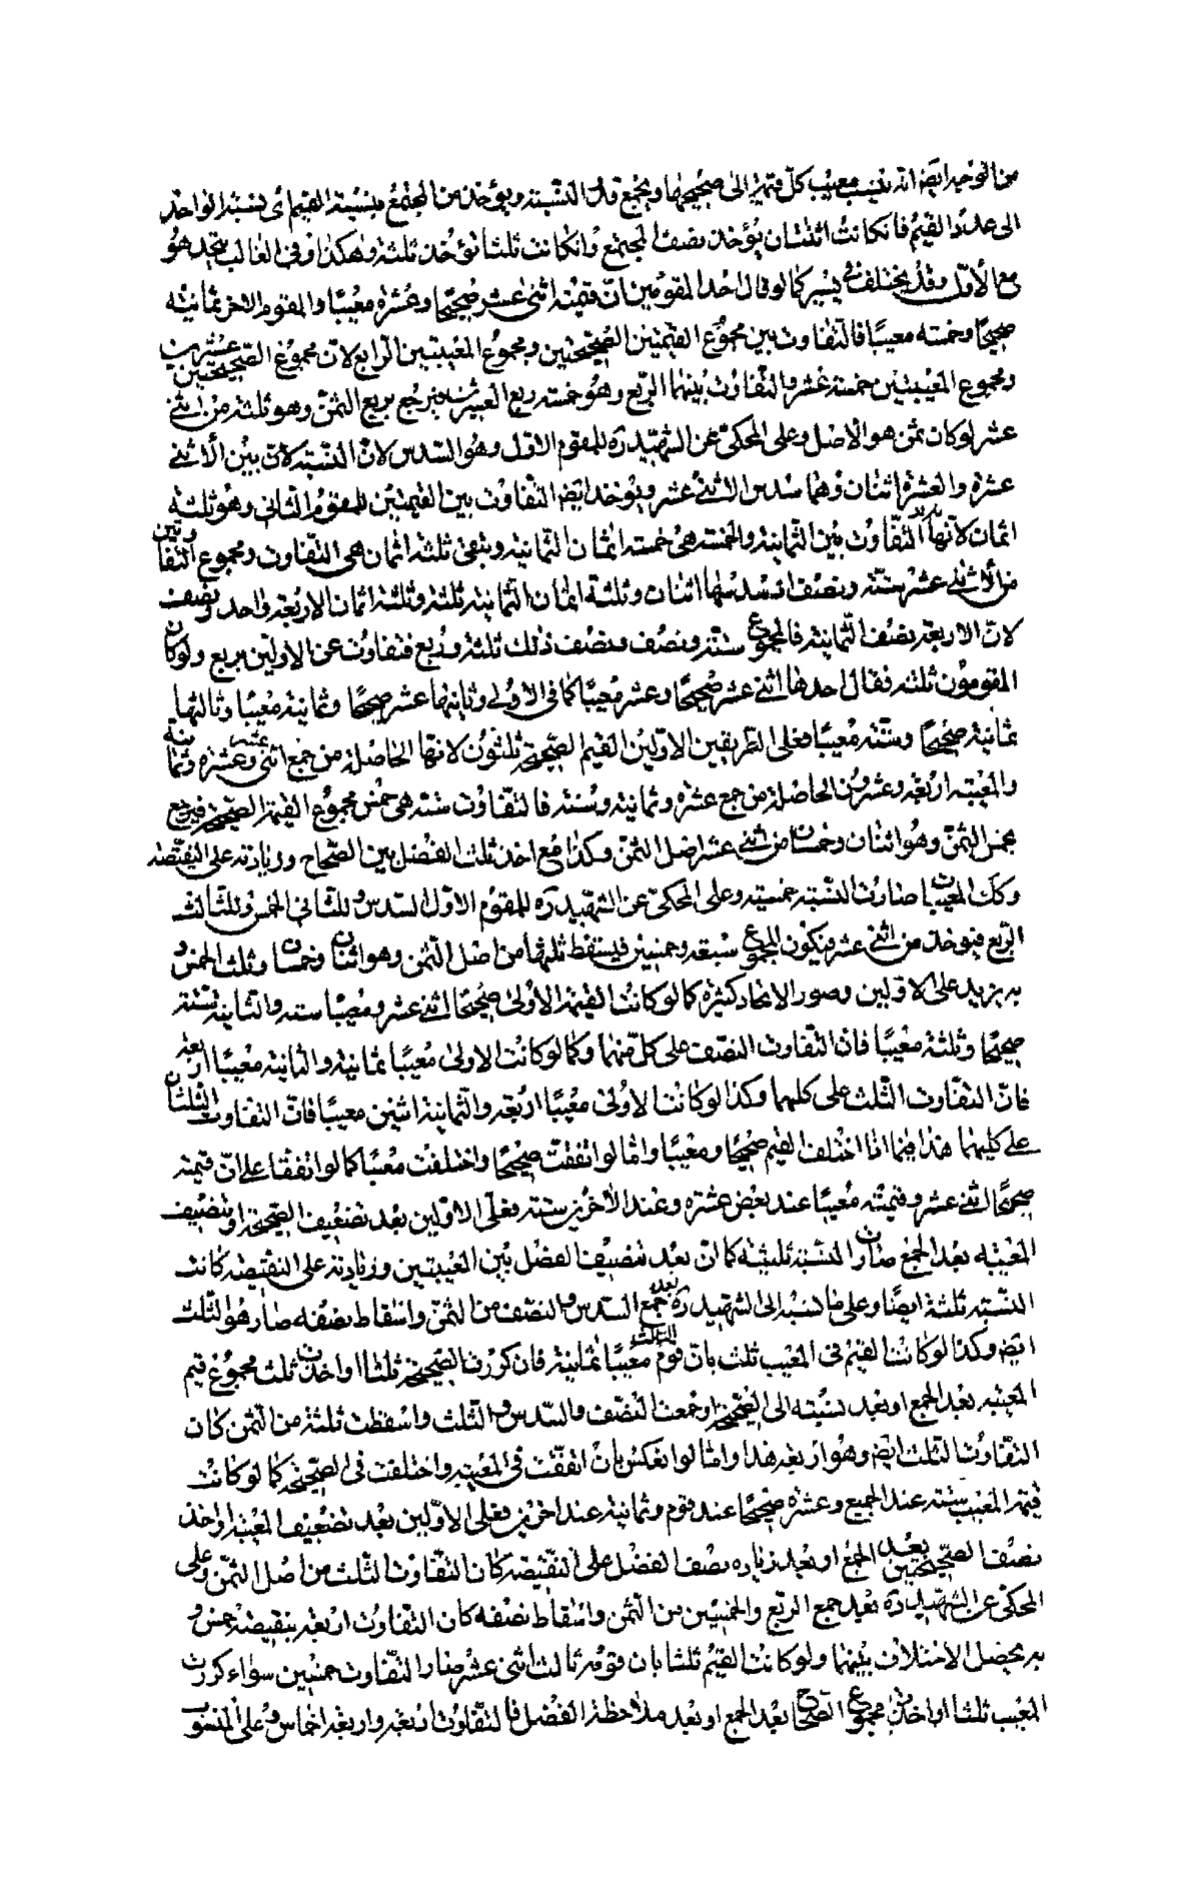 من التوحيد ايضا انه ينسب معيب كل قيمة الى صحيحها ويجمع قدر النسبة ويؤخذ من المجتمع بنسبة القيم اى نسبة الواحد
الى عدد القيم فان كانت اثنتان يؤخذ نصف المجتمع وان كانت ثلثا تؤخذ ثلثه وهكذا وفى الغالب يتحد هو
مع الأول وقد يختلف فى يسير كما لو قال احد المقومين ان قيمته اثنى عشر صحيحا وعشرة معيبا والمقوم الاخر ثمانية
صحيحا وخمسة معيبا فالتفاوت بين مجموع القيمتين الصحيحتين ومجموع المعيبتين الرابع لان مجموع الصحيحتين عشرين
ومجموع المعيبتين خمسة عشر والتفاوت بينهما الربع وهو خمسة ربع العشرين فيرجع بربع الثمن وهو ثلثة من اثنى
عشر لو كان ثمن هو الاصل وعلى المحكى عن الشهيد ره للمقوم الاول وهو السدس لان النسبة لان بين ألاثنى
عشرة والعشرة اثنان وهما سدس الاثنى عشر ويؤخذ ايضا التفاوت بين القيمتين للمقوم الثانى وهو ثلثة
اثمان لانها التفاوت بين الثمانية والخمسة هى خمسة اثمان الثمانية ويبقى ثلثة اثمان هى التفاوت ومجموع التفاوتين
من ألاثنى عشر ستة ونصف اذ سدسها اثنان وثلثة اثمان الثمانية ثلثة وثلثة اثمان الاربعة واحد ونصف
لان الاربعة نصف الثمانية فالمجموع ستة ونصف ونصف ذلك ثلثة وربع فتفاوت عن الاولين بربع ولو كان
المقومون ثلثة فقال احدها اثنى عشر صحيحا وعشر معيبا كما فى الأولى وثانيها عشر صحيحا وثمانية معيبا وثالثها
ثمانية صحيحا وستة معيبا فعلى الطريقين الاولين القيم الصحيحة ثلثون لانها الحاصلة من جمع اثنى عشر وعشرة وثمانية
والمعيبة اربعة وعشرون الحاصلة من جمع عشرة وثمانية وستة فالتفاوت ستة هى خمس مجموع القيمة الصحيحة فيرجع
بخمس الثمن وهو اثنان وخمسان من اثنى عشر اصل الثمن وكذا مع اخذ ثلث الفضل بين الصحاح وزيادته على النقيصة
وكك المعيبات صارت النسبة خمسية وعلى المحكى عن الشهيد ره للمقوم الاول السدس وللثانى الخمس وللثالث
الربع فيؤخذ من اثنى عشر فيكون المجموع سبعة وخمسين فيسقط ثلثها من اصل الثمن وهو اثنان وخمسان وثلث الخمس و
به يزيد على الاولين وصور الاتحاد كثيرة كما لو كانت القيمة الأولى صحيحا اثنى عشر ومعيبا ستة والثانية ستة
صحيحا وثلثة معيبا فان التفاوت النصف على كل منهما وكما لو كانت الاولى معيبا ثمانية والثانية معيبا اربعة
فان التفاوت الثلث على كليهما وكذا لو كانت لأولى معيبا اربعة والثمانية اثنين معيبا فان التفاوت الثلثان
على كليهما هذا فيما اذا اختلف القيم صحيحا ومعيبا واما لو اتفقت صحيحا واختلفت معيبا كما لو اتفقا على ان قيمته
صحيحا اثنى عشر وقيمته معيبا عند بعض عشرة وعند الاخرين ستة فعلى الاولين بعد تضعيف الصحيحة او تنصيف
المعيبة بعد الجمع صارت النسبة ثلثية كما ان بعد تنصيف الفضل بين المعيبتين وزيادته على النقيصة كانت
النسبة ثلثة ايضا وعلى ما نسب الى الشهيد ره بعد جمع السدس والنصف من الثمن واسقاط نصفه صار هو الثلث
ايضا وكذا لو كانت القيم فى المعيب ثلث بان قوم الثالث معيبا ثمانية فان كررت الصحيحة ثلثا او اخذت ثلث مجموع قيم
المعيبة بعد الجمع او بعد نسبته الى الصحيحة او جمعت النصف والسدس والثلث واسقطت ثلثة من الثمن كان
التفاوت الثلث ايضا وهو اربعة هذا واما لو انعكس بان اتفقت فى المعيبة واختلفت فى الصحيحة كما لو كانت
قيمة المعيب ستة عند الجميع وعشرة صحيحا عند قوم وثمانية عند اخرين فعلى الاولين بعد تضعيف المعيبة او اخذ
نصف الصحيحتين بعد الجمع او بعد زيادة نصف الفضل على النقيصة كان التفاوت الثلث من اصل الثمن وعلى
المحكى عن الشهيد ره بعد جمع الربع والخمسين من الثمن واسقاط نصفه كان التفاوت اربعة بنقيصة خمس و
به يحصل الاختلاف بينهما ولو كانت القيم ثلثا بان قومه ثالث اثنى عشر صار التفاوت خمسين سواء كررت
المعيب ثلثا او اخذت مجموع الصحاح بعد الجمع او بعد ملاحظة الفضل فالتفاوت اربعة واربعة اخماس وعلى المنسوب